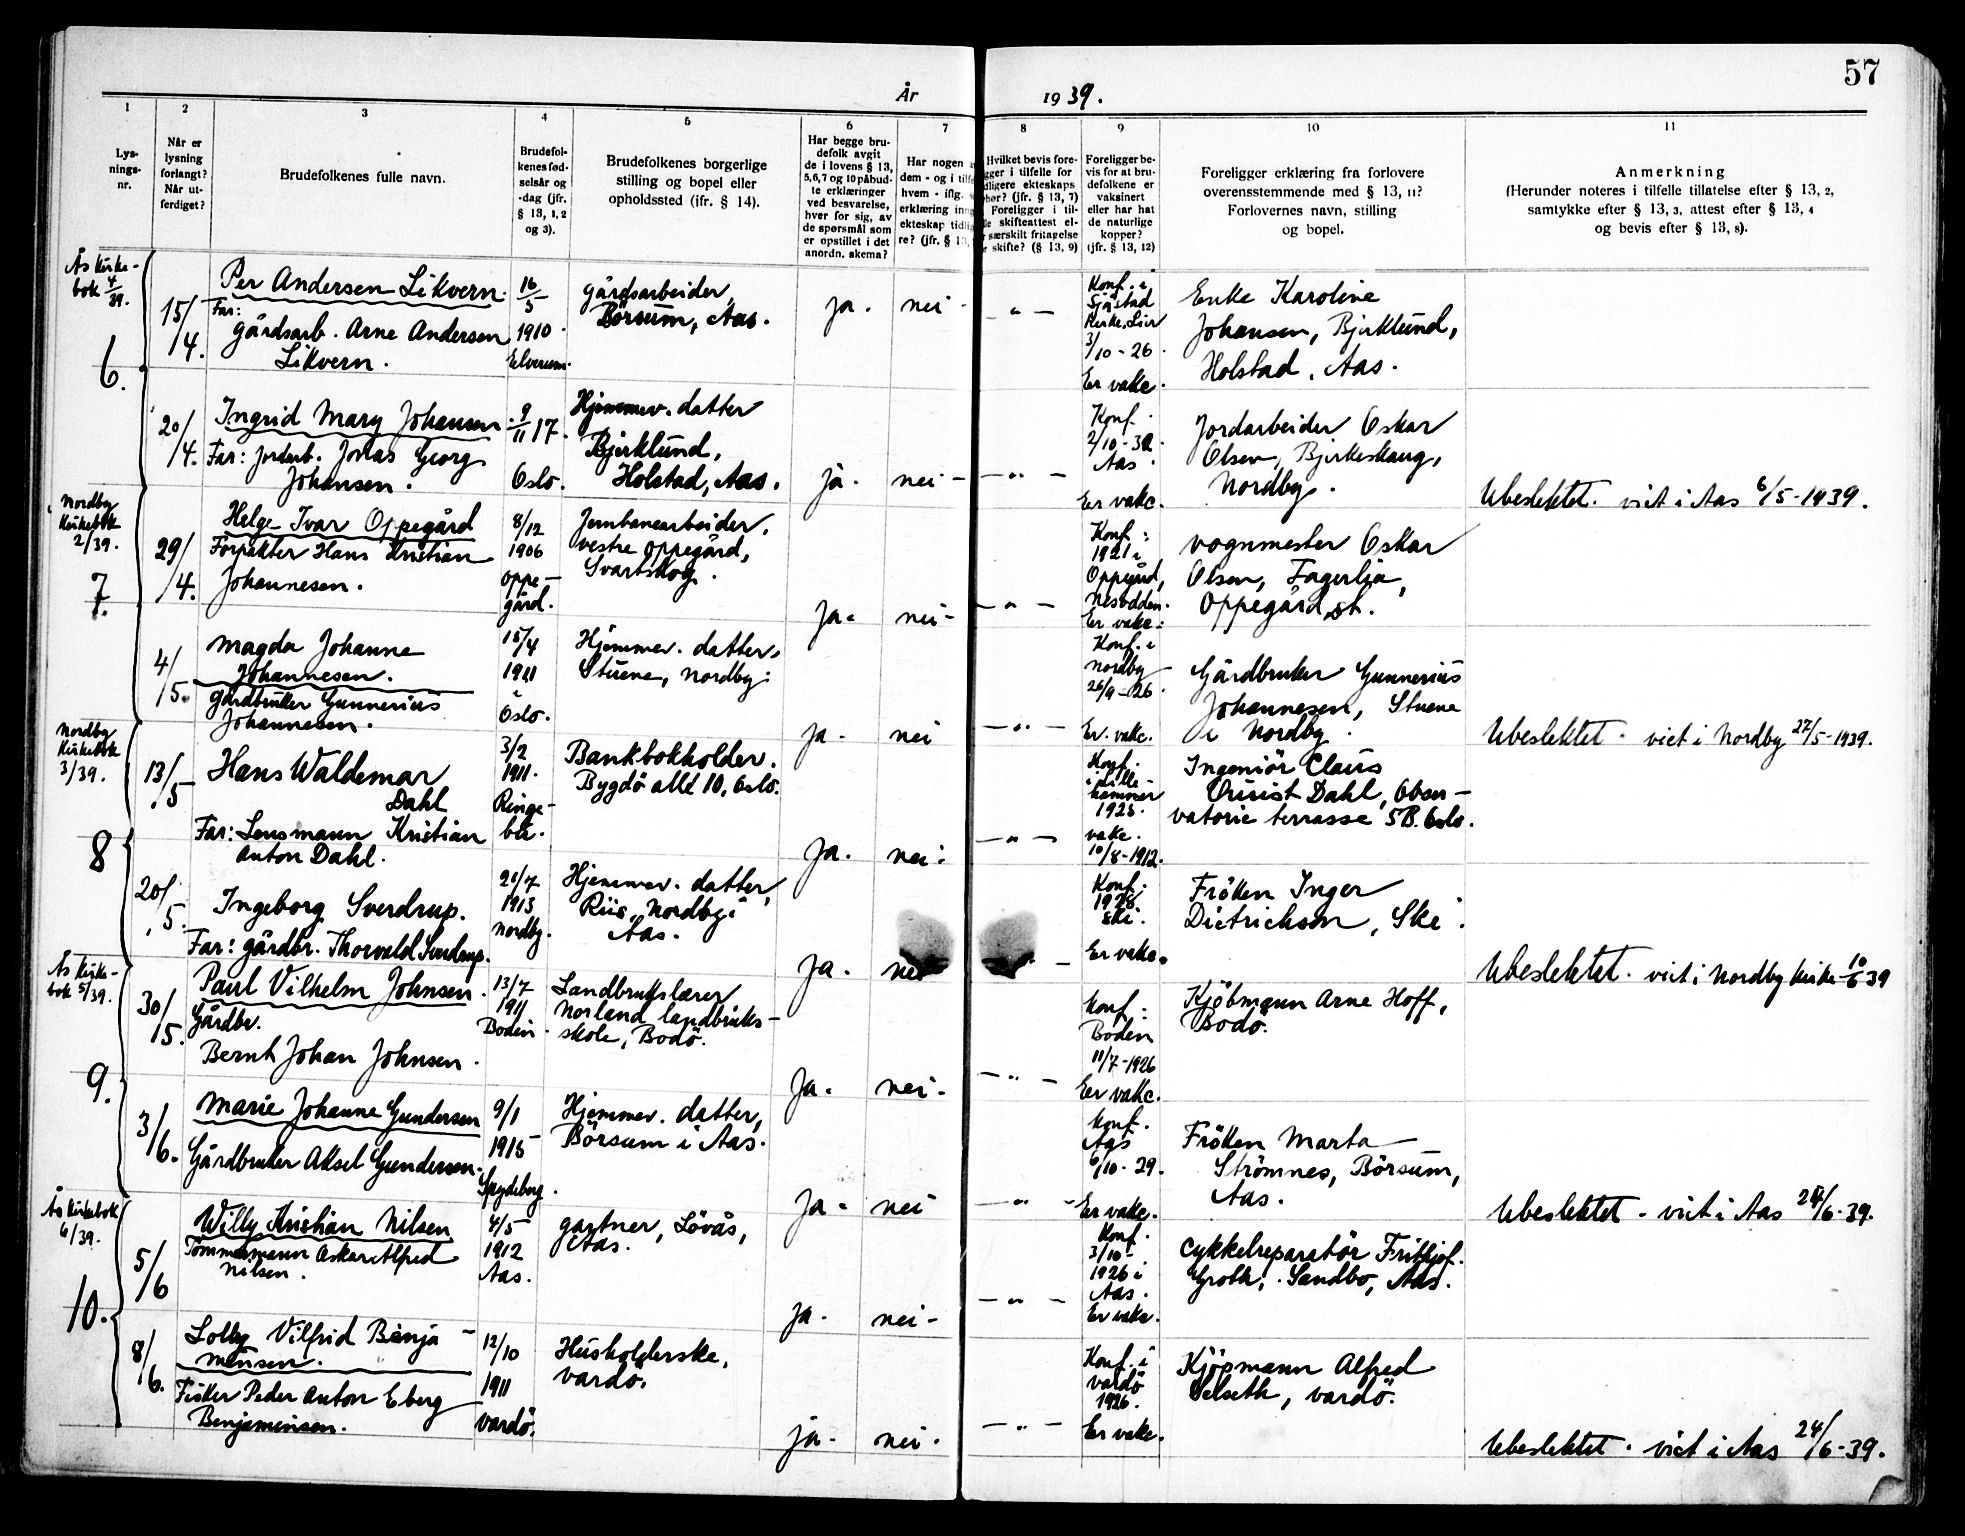 57
År 1939.
1 2 3 4 5 6 7 8 9 10 11
Lys-
nings-
nr.
Når er
lysning
forlangt?
Når ut-
ferdiget?
Brudefolkenes fulle navn.
Brudefol-
kenes fød-
selsår og
-dag (jfr.
§ 13, 1, 2
og 3).
Brudefolkenes borgerlige
stilling og bopel eller
opholdssted (ifr. § 14).
Har begge bru-
defolk avgit
de i lovens § 13,
5,6,7 og 10 påbud-
te erklæringer
ved besvarelse,
hver for sig, av
de spørsmål som
er opstillet i det
anordn. skema?
Har nogen
dem - og i tilfe
hvem - iflg.
erklæring inng
ekteskap tidlig
re? (jfr. § 13,
Hvilket bevis fore-
gger i tilfelle for
dligere ekteskaps
phør? (jfr. § 13, 7)
Foreligger i til-
lle skifteattest el-
r særskilt fritagelse
r skifte? (§ 13, 9)
Foreligger be-
vis for at bru-
defolkene er
vaksinert
eller har hat
de naturlige
kopper?
(jfr. § 13, 12)
Foreligger erklæring fra forlovere
overensstemmende med § 13, 11?
Forlovernes navn, stilling
og bopel.
Anmerkning
(Herunder noteres i tilfelle tillatelse efter § 13, 2,
samtykke efter § 13, 3, attest efter § 13, 4
og bevis efter § 13, 8).
Ås kirke-
bok 4/39.
6.
15/4.
Per Andersen Likvern.
Far:
gårdsarb. Arne Andersen
Likvern.
16/5
1910.
Elverum.
gårdsarbeider,
Börsum, Aas.
ja. nei - - " -
Konf. i
Sjåstad
kirke, Lier
3/10-26.
Er vakc.
Enke Karoline
Johansen, Bjirklund,
Holstad, Aas.
20/4.
Ingrid Mary Johansen
Far: jordarb. Jonas Georg
Johansen.
9/11 17.
Oslo.
Hjemmev. datter
Bjirklund,
Holstad, Aas.
ja. nei - - " -
Konf.
Aas
Er vakc.
Jordarbeider Oskar
Olsen, Bjirkeskaug,
Nordby.
Ubeslektet. viet i Aas 6/5-1939.
Nordby
kirkebok
2/39.
7.
29/4.
Helge Ivar Oppegård
Forpakter Hans Kristian
Johannesen.
8/12
1906
Oppe-
gård.
Jernbanearbeider,
vestre Oppegård,
Svartskog.
ja. nei - - " -
Konf:
1921 i
Oppegård,
Nesodden.
Er vakc.
vognmester Oskar
Olsen, Fagerlia,
Oppegård st.
4/5.
Magda Johanne
Johannesen.
gårdbruker Gunnerius
Johannesen.
15/4
1911
i
Oslo.
Hjemmev. datter,
Stuene, Nordby.
ja. nei - " -
Konf. i
Nordby
26/9-26.
Er. vakc.
Gårdbruker Gunnerius
Johannesen, Stuene
i Nordby.
Ubeslektet. viet i Nordby 27/5-1939.
Nordby
kirkebok
3/39.
8
13/5
Hans Waldemar
Dahl
Far: Lensmann Kristian
Anton Dahl.
3/2
1911.
Ringe-
bu.
Bankbokholder.
Bygdö allé 10, Oslo.
ja. nei. - " -
Konf.
i Lille-
hammer
vakc.
10/8-1912.
Ingeniör Claus
Dahl, Obser-
vatorie terrasse 5B. Oslo.
20/5.
Ingeborg Sverdrup.
Far: gårdbr. Thorvald Sverdrup.
1913
Nordby.
Hjemmev. datter,
Riis, Nordby i
Aas.
ja. nei
Konf.
1928
Ski.
Er vakc.
Fröken Inger
Dietrichson, Ski.
Ubeslektet. viet i Nordby kirke 10/6 39
Ås kirke-
bok 5/39.
9.
30/5.
Paul Vilhelm Johnsen.
Gårdbr.
Bernt Johan Johnsen.
13/7
1911
Bodin.
Landbrukslærer
Norland landbruks-
skole, Bodö.
ja. nei. - " -
Konf:
Boden
11/7-1926
Er vakc.
Kjöbmann Arne Hoff,
Bodö.
3/6.
Marie Johanne Gundersen
Gårdbruker Aksel Gundersen.
9/1
1915
Spydeberg.
Hjemmev. datter,
Börsum i Aas.
ja. nei - " -
Konf.
Aas
6/10-29.
Er vakc.
Fröken Marta
Strömnes, Börsum,
Aas.
Ubeslektet. viet i Aas 24/6-39.
Ås kirkebok
6/39.
10.
5/6
Willy Kristian Nilsen
Tömmermann Oskar Alfred
Nilsen.
4/5
1912
Aas.
gartner, Lövås,
Aas.
ja. nei. - " -
Konf.
3/10-
1926 i
Aas.
Er vakc.
Cykkelreparatör Frithjof
Groth, Sandbo, Aas.
8/6.
Solby Vilfrid Benja-
minsen.
Fisker Peder Anton Eberg
Benjaminsen.
12/10
1911
Vardö.
Husholderske,
Vardö.
ja. nei. - " -
Konf. i
Vardö
1926.
Er vakc.
Kjöpmann Alfred
Selseth, Vardö.
Ubeslektet. viet i Aas 24/6-39.